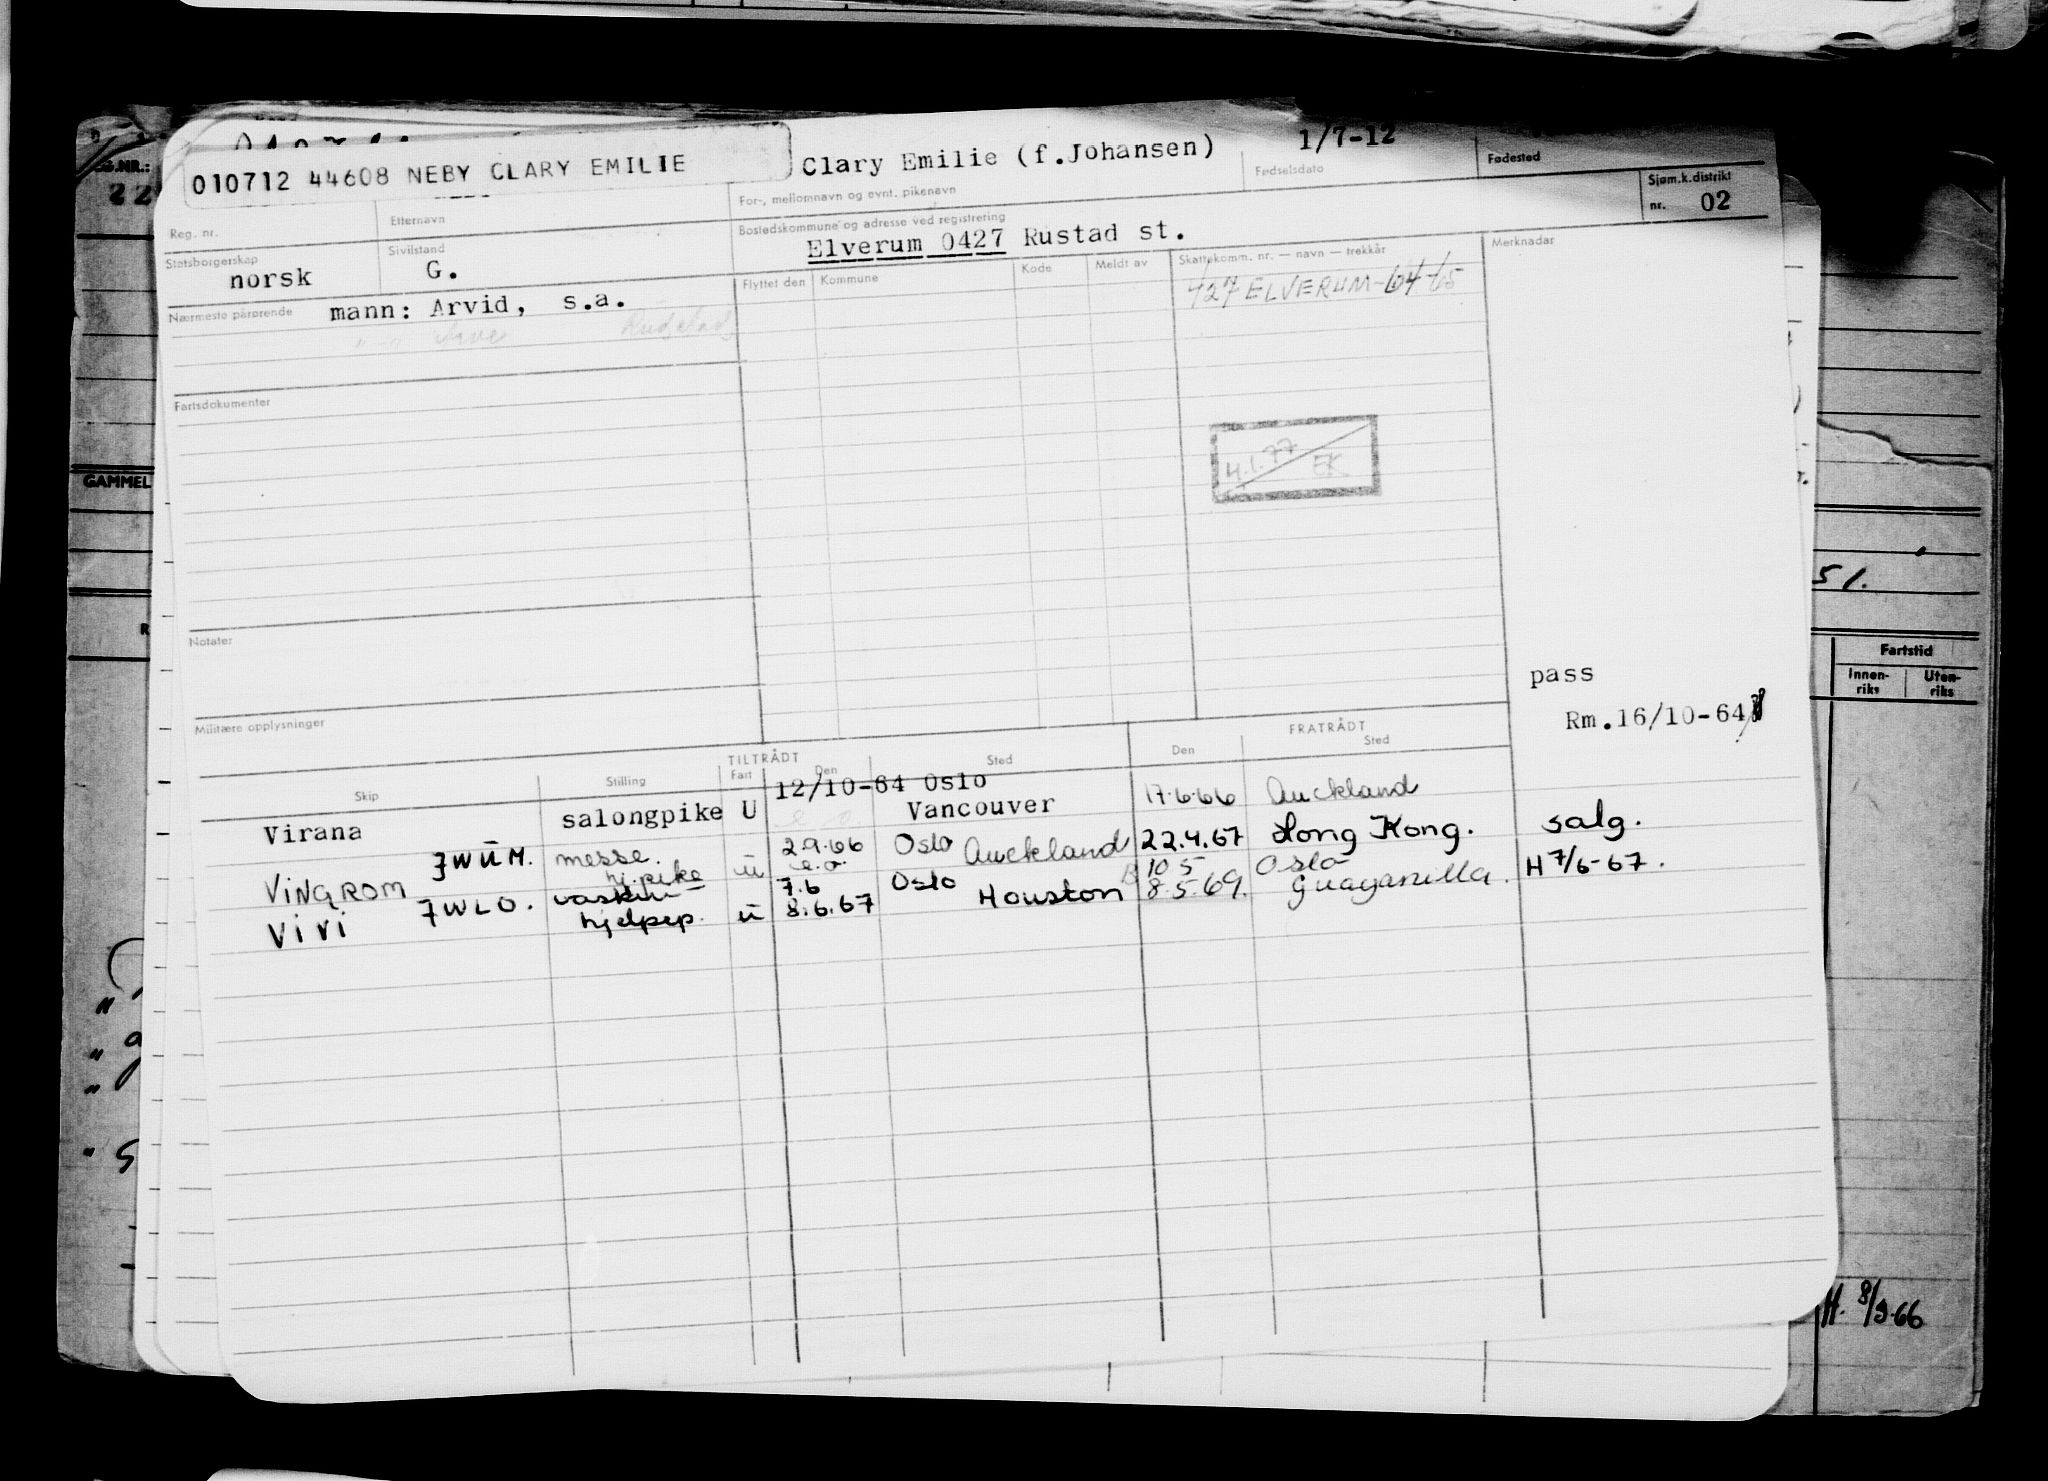 010712 44608 NEBY CLARY EMILIE
Clary Emilie (f.Johansen)
1/7-12
Reg. nr.
Etternavn
For-, mellomnavn og evnt. pikenavn
Fødselsdato
Fødested
Statsborgerskap
norsk
Sivilstand
G.
Bostedskommune og adresse ved registrering
Elverum 0427 Rustad st.
Sjøm.k.distrikt
nr. 02
Nærmeste pårørende
mann: Arvid, s.a.
Flyttet den
Kommune
Kode
Meldt av
Skattekomm. nr. — navn — trekkår
427 ELVERUM-64-65
Merknader
Fartsdokumenter
4.1.77
EK
Notater
Militære opplysninger
pass
Rm.16/10-64
TILTRÅDT
FRATRÅDT
Skip
Stilling
Fart
Den
Sted
Den
Sted
Virana
salongpike U
12/10-64 Oslo
Vancouver
17.6.66
Auckland
VINGROM
JWUM.
messe.
hj.pike
u
2.9.66
e.o.
Oslo
Auckland
22.4.67
Hong Kong.
salg.
ViVi
JWLO.
vaskeri
hjelpep.
u
7.6
8.6.67
Oslo
Houston
10.5
8.5.69.
Oslo
Guayanilla.
H 7/6-67.
G.NR.:
22
GAMMEL
R
51.
Fartstid
Innen-
riks
Uten-
riks
H. 8/9.66